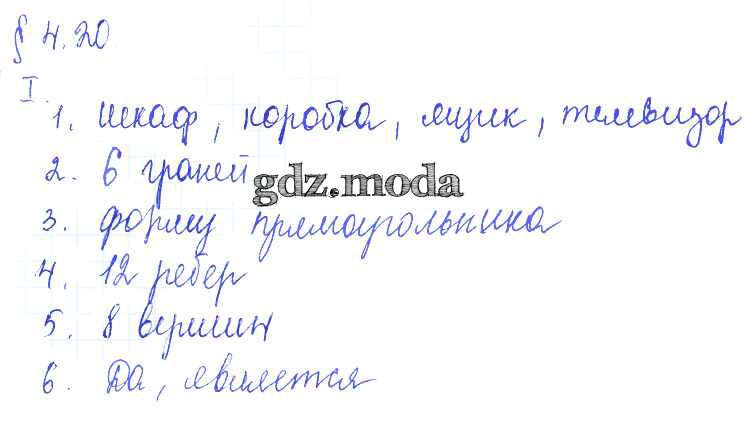 § 4.20.
I.
1. шкаф, коробка, ящик, телевизор
2. 6 граней
gdz.moda
3. форму прямоугольника
4. 12 ребер
5. 8 вершин
6. Да, является